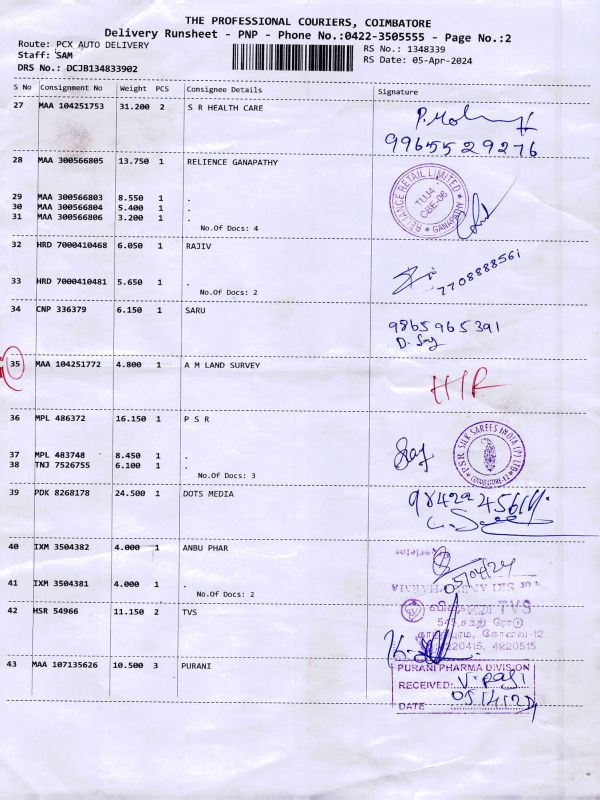 THE PROFESSIONAL COURIERS, COIMBATORE
Delivery Runsheet - PNP - Phone No.:0422-3505555 - Page No.:2
Route: PCX AUTO DELIVERY
RS No.: 1348339
Staff: SAM
RS Date: 05-Apr-2024
DRS No.: DCJB134833902
S No Consignment No Weight PCS Consignee Details Signature
27 MAA 104251753 31.200 2 S R HEALTH CARE
9965529276
28 MAA 300566805 13.750 1 RELIENCE GANAPATHY
RELIANCE RETAIL LIMITED
TUJ4
CBE-06
* GANAPATHY *
29 MAA 300566803 8.550 1 .
30 MAA 300566804 5.400 1 .
31 MAA 300566806 3.200 1 .
No.Of Docs: 4
32 HRD 7000410468 6.050 1 RAJIV
7708888561
33 HRD 7000410481 5.650 1 .
No.Of Docs: 2
34 CNP 336379 6.150 1 SARU
9865965391
35 MAA 104251772 4.800 1 A M LAND SURVEY
36 MPL 486372 16.150 1 P S R
P.S.R SILK SAREES INDIA (P) LTD
COIMBATORE-12
37 MPL 483748 8.450 1 .
38 TNJ 7526755 6.100 1 .
No.Of Docs: 3
39 PDK 8268178 24.500 1 DOTS MEDIA
40 IXM 3504382 4.000 1 ANBU PHAR
05/04/24
41 IXM 3504381 4.000 1 .
No.Of Docs: 2
42 HSR 54966 11.150 2 TVS
கோவை-12
220415, 4220515
43 MAA 107135626 10.500 3 PURANI
PURANI PHARMA DIVISION
RECEIVED: V. Raji
DATE 05/4/24